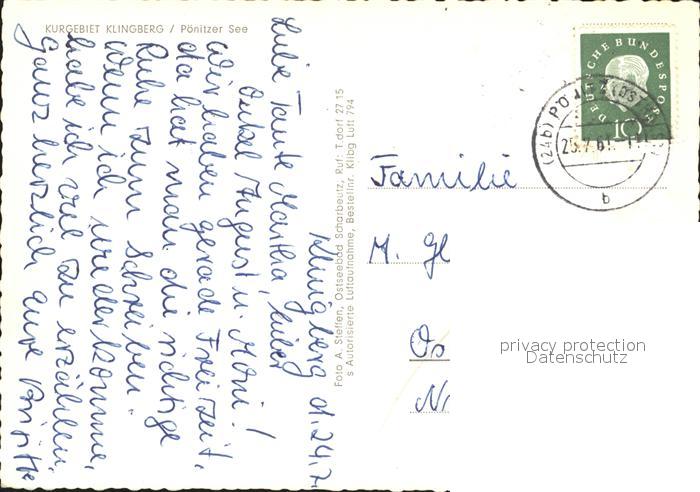 KURGEBIET KLINGBERG / Pönitzer See
Klingberg d. 24.7.
Liebe Tante Martha, lieber
Onkel August u. Moni!
Wir haben gerade Freizeit,
da hat man die richtige
Ruhe zum Schreiben.
Wenn ich wiederkomme,
habe ich viel zu erzählen.
Ganz herzlich eure
Foto A. Steffen, Ostseebad Scharbeutz, Ruf: T.dorf 27 15
s Autorisierte Luftaufnahme, Bestellnr. Klbg Luft 794
DEUTSCHE BUNDESPOST
10
(24b) PÖNITZ
25.7.61
b
Familie
M. Gl
Os
privacy protection
Datenschutz